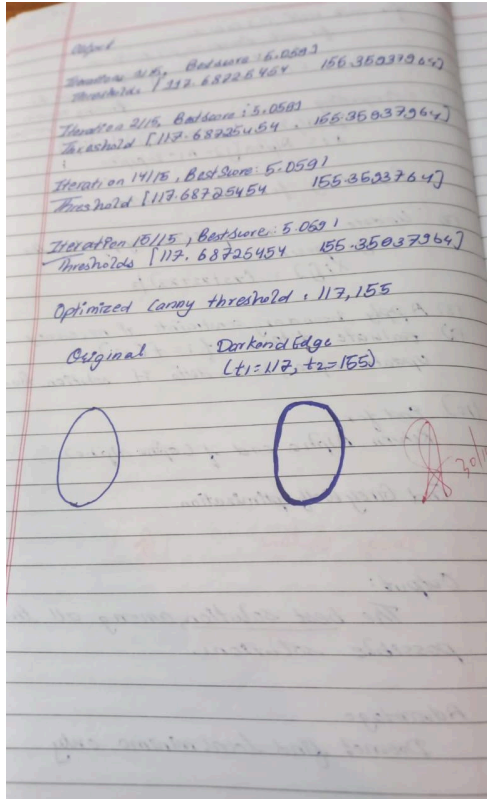 Output
Iteration 1/15, Best score: 5.0591
Thresholds [117.68725454 155.35937964]
Iteration 2/15, Best score: 5.0591
Threshold [117.68725454 . 155.35937964]
:
Iteration 14/15, Best Score: 5.0591
Threshold [117.68725454 155.3593764]
Iteration 15/15, Best Score: 5.0691
Thresholds [117.68725454 155.35937964]
Optimized canny threshold: 117,155
Original Darkend Edge
(t1=117, t2=155)